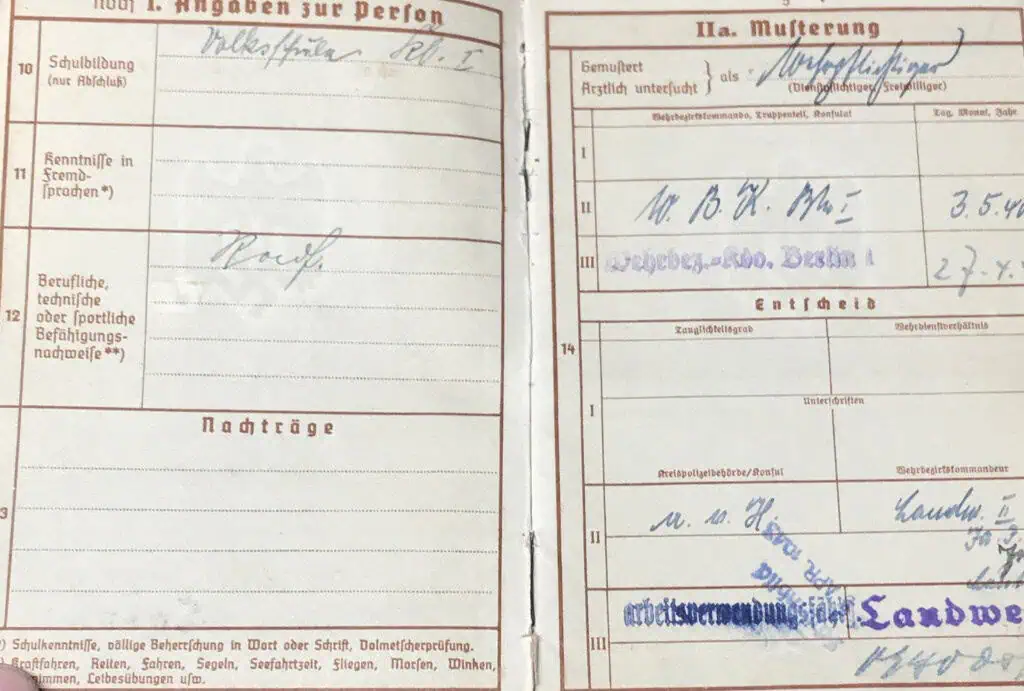 Noch I. Angaben zur Person
10
Schulbildung
(nur Abschluß)
Volksschule Kl. I
11
Kenntnisse in
Fremd-
sprachen*)
12
Berufliche,
technische
oder sportliche
Befähigungs-
nachweise**)
Nachträge
3
*) Schulkenntnisse, völlige Beherrschung in Wort oder Schrift, Dolmetscherprüfung.
Kraftfahren, Reiten, Fahren, Segeln, Seefahrtzeit, Fliegen, Morsen, Winken,
Leibesübungen usw.
IIa. Musterung
Gemustert
Ärztlich untersucht } als Wehrpflichtiger
(Dienstpflichtiger, Freiwilliger)
Wehrbezirkskommando, Truppenteil, Konsulat
Tag, Monat, Jahr
I
II W. B. K. Bln I 3.5.40
III Wehrbez.-Kdo. Berlin I 27.4.
Entscheid
14
Tauglichkeitsgrad
Wehrdienstverhältnis
I
Unterschriften
Kreispolizeibehörde/Konsul
Wehrbezirkskommandeur
II a. v. H. Landw. II
APR. 1943
III arbeitsverwendungsfähig Landwe